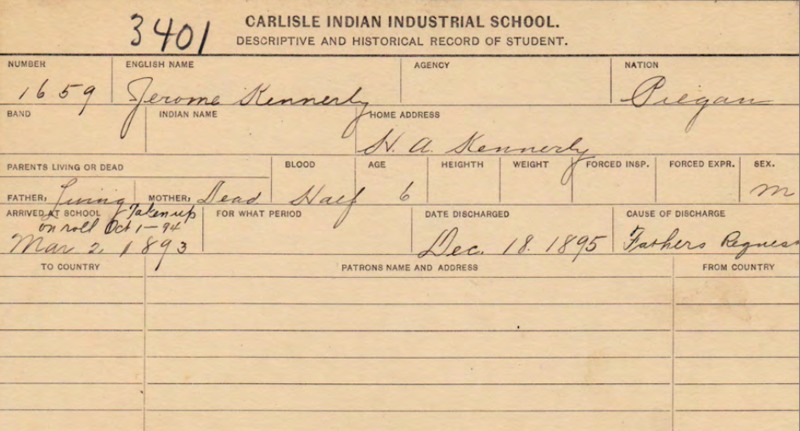 3401
CARLISLE INDIAN INDUSTRIAL SCHOOL.
DESCRIPTIVE AND HISTORICAL RECORD OF STUDENT.
NUMBER ENGLISH NAME AGENCY NATION
1659 Jerome Kennerly Piegan
BAND INDIAN NAME HOME ADDRESS
H. A. Kennerly
PARENTS LIVING OR DEAD BLOOD AGE HEIGHTH WEIGHT FORCED INSP. FORCED EXPR. SEX.
FATHER, Living MOTHER, Dead Half 6 M
ARRIVED AT SCHOOL Taken up FOR WHAT PERIOD DATE DISCHARGED CAUSE OF DISCHARGE
on roll Oct 1-94
Mar 2, 1893 Dec. 18. 1895 Fathers Reques
TO COUNTRY PATRONS NAME AND ADDRESS FROM COUNTRY